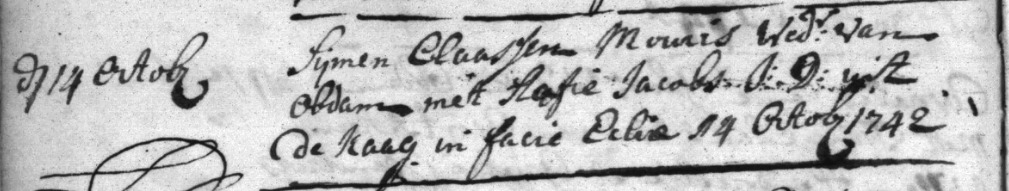 d 14 Octob
Sijmen Claassen Mouris Wedr. van
obdam met Aefie Jacobs J: D: uijt
de Kaag in facie Eclie 14 Octob 1742